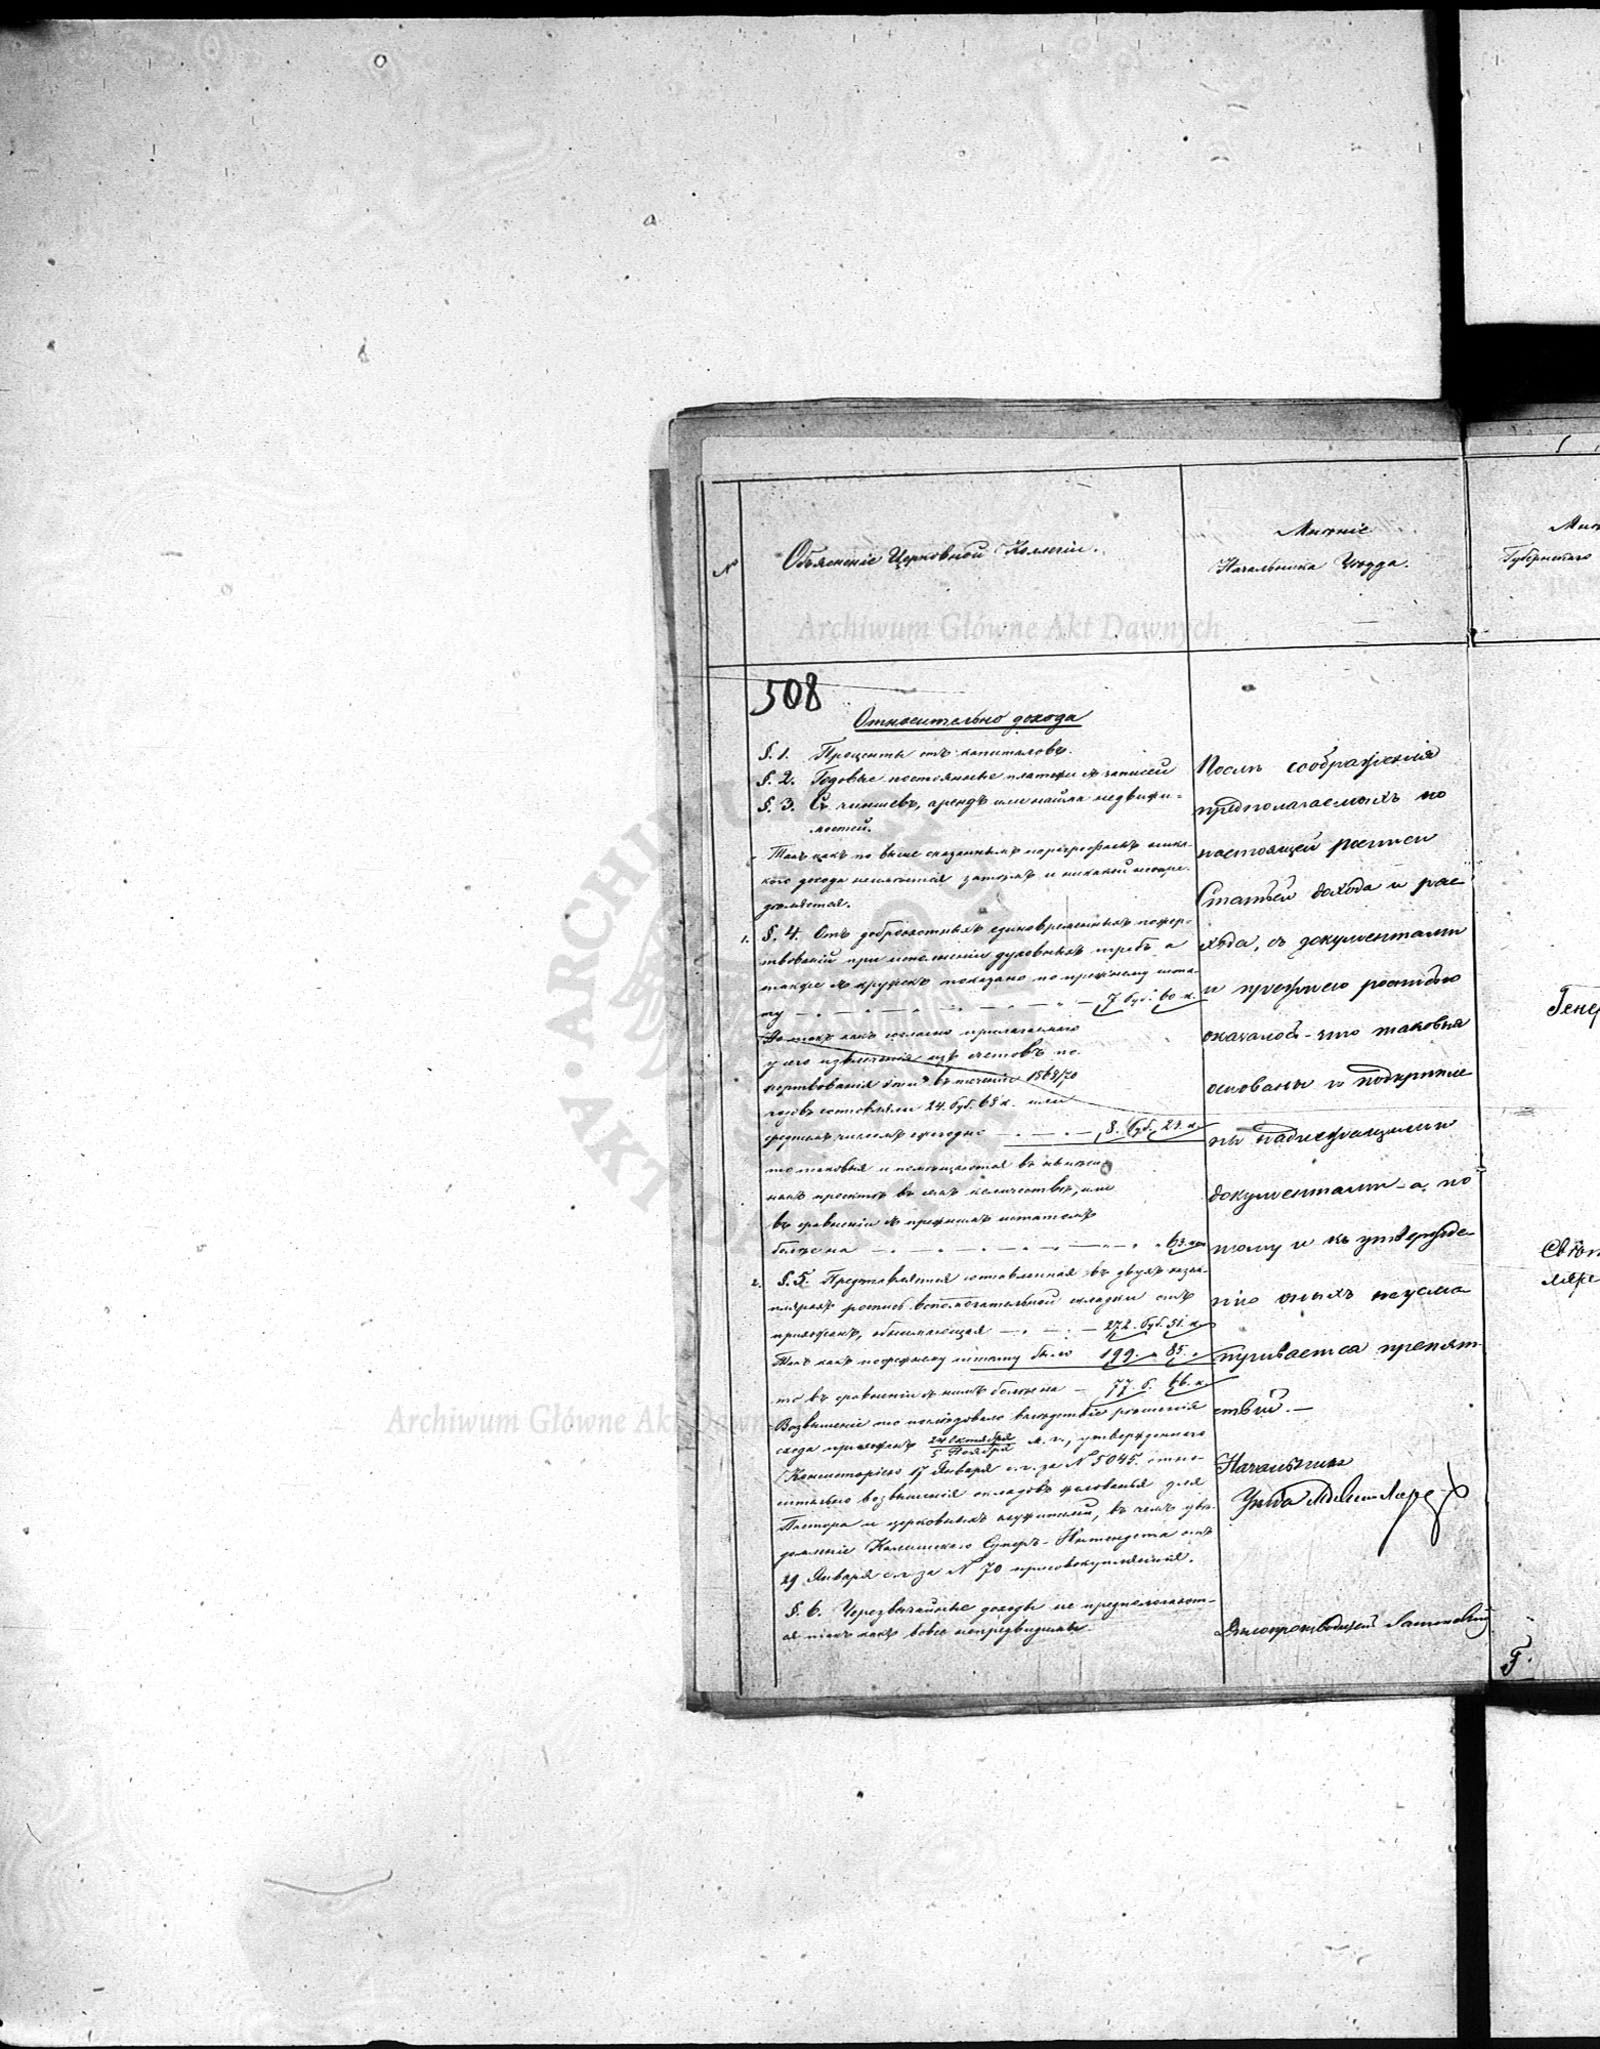 №
Объясненіе Церковной Коллегіи.
Мнѣніе
Начальника Уѣзда.
Губернскаго
508
Относительно дохода
§. 1. Проценты отъ капиталовъ.
§. 2. Годовые постоянные платежи съ записей
§. 3. Съ чиншевъ, арендъ или найма недвижи-
мостей.
Такъ какъ по выше сказаннымъ параграфамъ ника-
кого дохода неимѣется затѣмъ и никакой неопре-
дѣляется.
1. §. 4. Отъ доброхотныхъ единовременныхъ пожер-
твованій при исполненіи духовныхъ требъ а
также съ кружекъ показано по прежнему шта-
ту 7 руб. 60 к.
Но такъ какъ согласно прилагаемаго
у сего извлеченія изъ счетовъ по-
жертвованія эти въ теченіе 1868/70
годовъ составляли 24. руб. 68 к. или
среднимъ числомъ ежегодно 8. руб. 23. к.
то таковыя и помѣщаются въ нынѣш-
немъ проектѣ въ семъ количествѣ, или
въ сравненіи съ прежнимъ штатомъ
болѣе на 63. к.
2. §. 5. Представляется составленная въ двухъ экзем-
плярахъ роспись вспомогательной складки отъ
прихожанъ, обнимающая 272. руб. 51. к.
Такъ какъ по прежнему штату было 199. " 85. "
то въ сравненіи съ нимъ болѣе на 77. р. 66. к.
Возвышеніе то послѣдовало вслѣдствіе рѣшенія
схода прихожанъ 24 Октября/5 Ноября м. г., утвержденнаго
Консисторіею 17 Января с. г. за № 5045. отно-
сительно возвышенія окладовъ жалованья для
Пастора и церковныхъ служителей, въ чемъ увѣ-
домленіе Калишскаго Суперъ-Интендента отъ
29 Января с. г. за № 70 присовокупляется.
§. 6. Чрезвычайные доходы не предполагают-
ся такъ какъ вовсе непредвидимы.
Послѣ соображенія
предполагаемыхъ по
настоящей росписи
Статьей дохода и рас-
хода, съ документами
и прежнею росписью
оказалось - что таковыя
основаны и подкрѣпле
ны надлежащими
документами - а, по
тому и къ утвержде
нію оныхъ неусма
тривается препят-
ствій. —
Начальникъ
Уѣзда
Дѣлопроизводитель
Г.
Archiwum Główne Akt Dawnych
Archiwum Główne Akt Dawnych